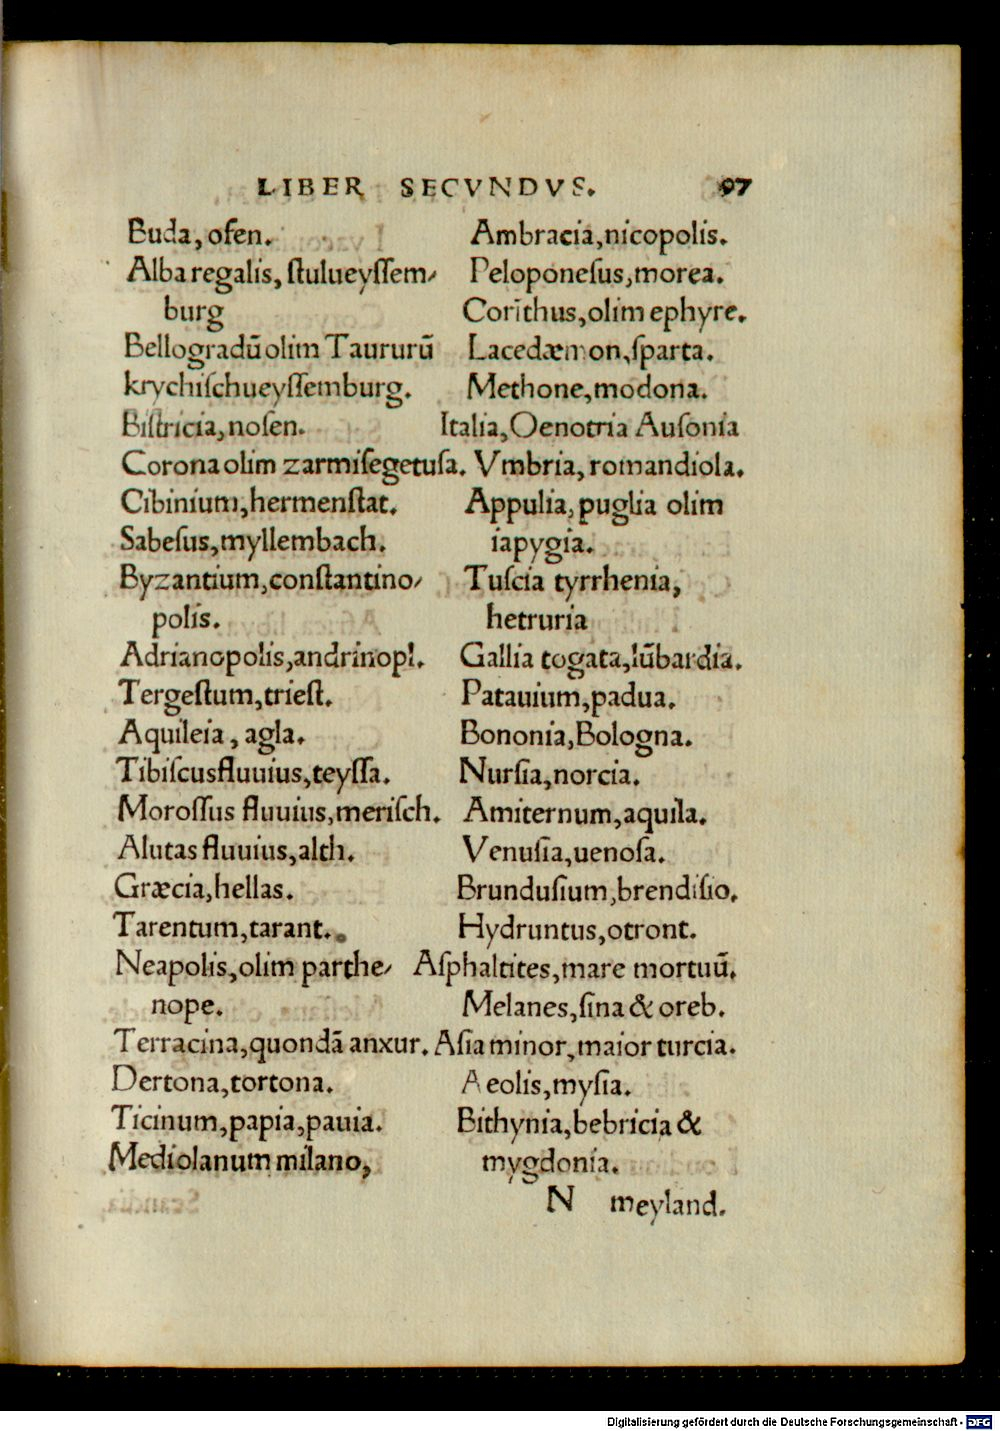 LIBER SECVNDVS. 97
Buda, ofen.
Alba regalis, ſtulueyſſem⸗
burg
Bellogradū olim Taururū
krychiſchueyſſemburg.
Biſtricia, noſen.
Corona olim zarmiſegetuſa.
Cibinium, hermenſtat.
Sabeſus, myllembach.
Byzantium, conſtantino⸗
polis.
Adrianopolis, andrinopl.
Tergeſtum, trieſt.
Aquileia, agla.
Tibiſcus fluuius, teyſſa.
Moroſſus fluuius, meriſch.
Alutas fluuius, alth.
Græcia, hellas.
Tarentum, tarant.
Neapolis, olim parthe⸗
nope.
Terracina, quondā anxur.
Dertona, tortona.
Ticinum, papia, pauia.
Mediolanum milano,
Ambracia, nicopolis.
Peloponeſus, morea.
Corīthus, olim ephyre.
Lacedæmon, ſparta.
Methone, modona.
Italia, Oenotria Auſonia
Vmbria, romandiola.
Appulia, puglia olim
iapygia.
Tuſcia tyrrhenia,
hetruria
Gallia togata, lūbardia.
Patauium, padua.
Bononia, Bologna.
Nurſia, norcia.
Amiternum, aquila.
Venuſia, uenoſa.
Brunduſium, brendiſio.
Hydruntus, otront.
Aſphaltites, mare mortuū.
Melanes, ſina & oreb.
Aſia minor, maior turcia.
Aeolis, myſia.
Bithynia, bebricia &
mygdonia.
N meyland.
Digitalisierung gefördert durch die Deutsche Forschungsgemeinschaft - DFG